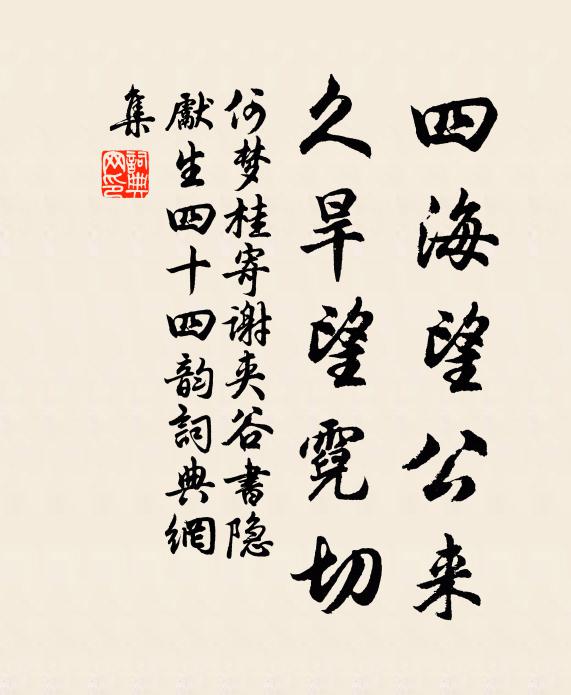 四海望公来
久旱望霓切
何梦桂寄谢夹谷书隐
献生四十四韵詞典網
集
詞典网印